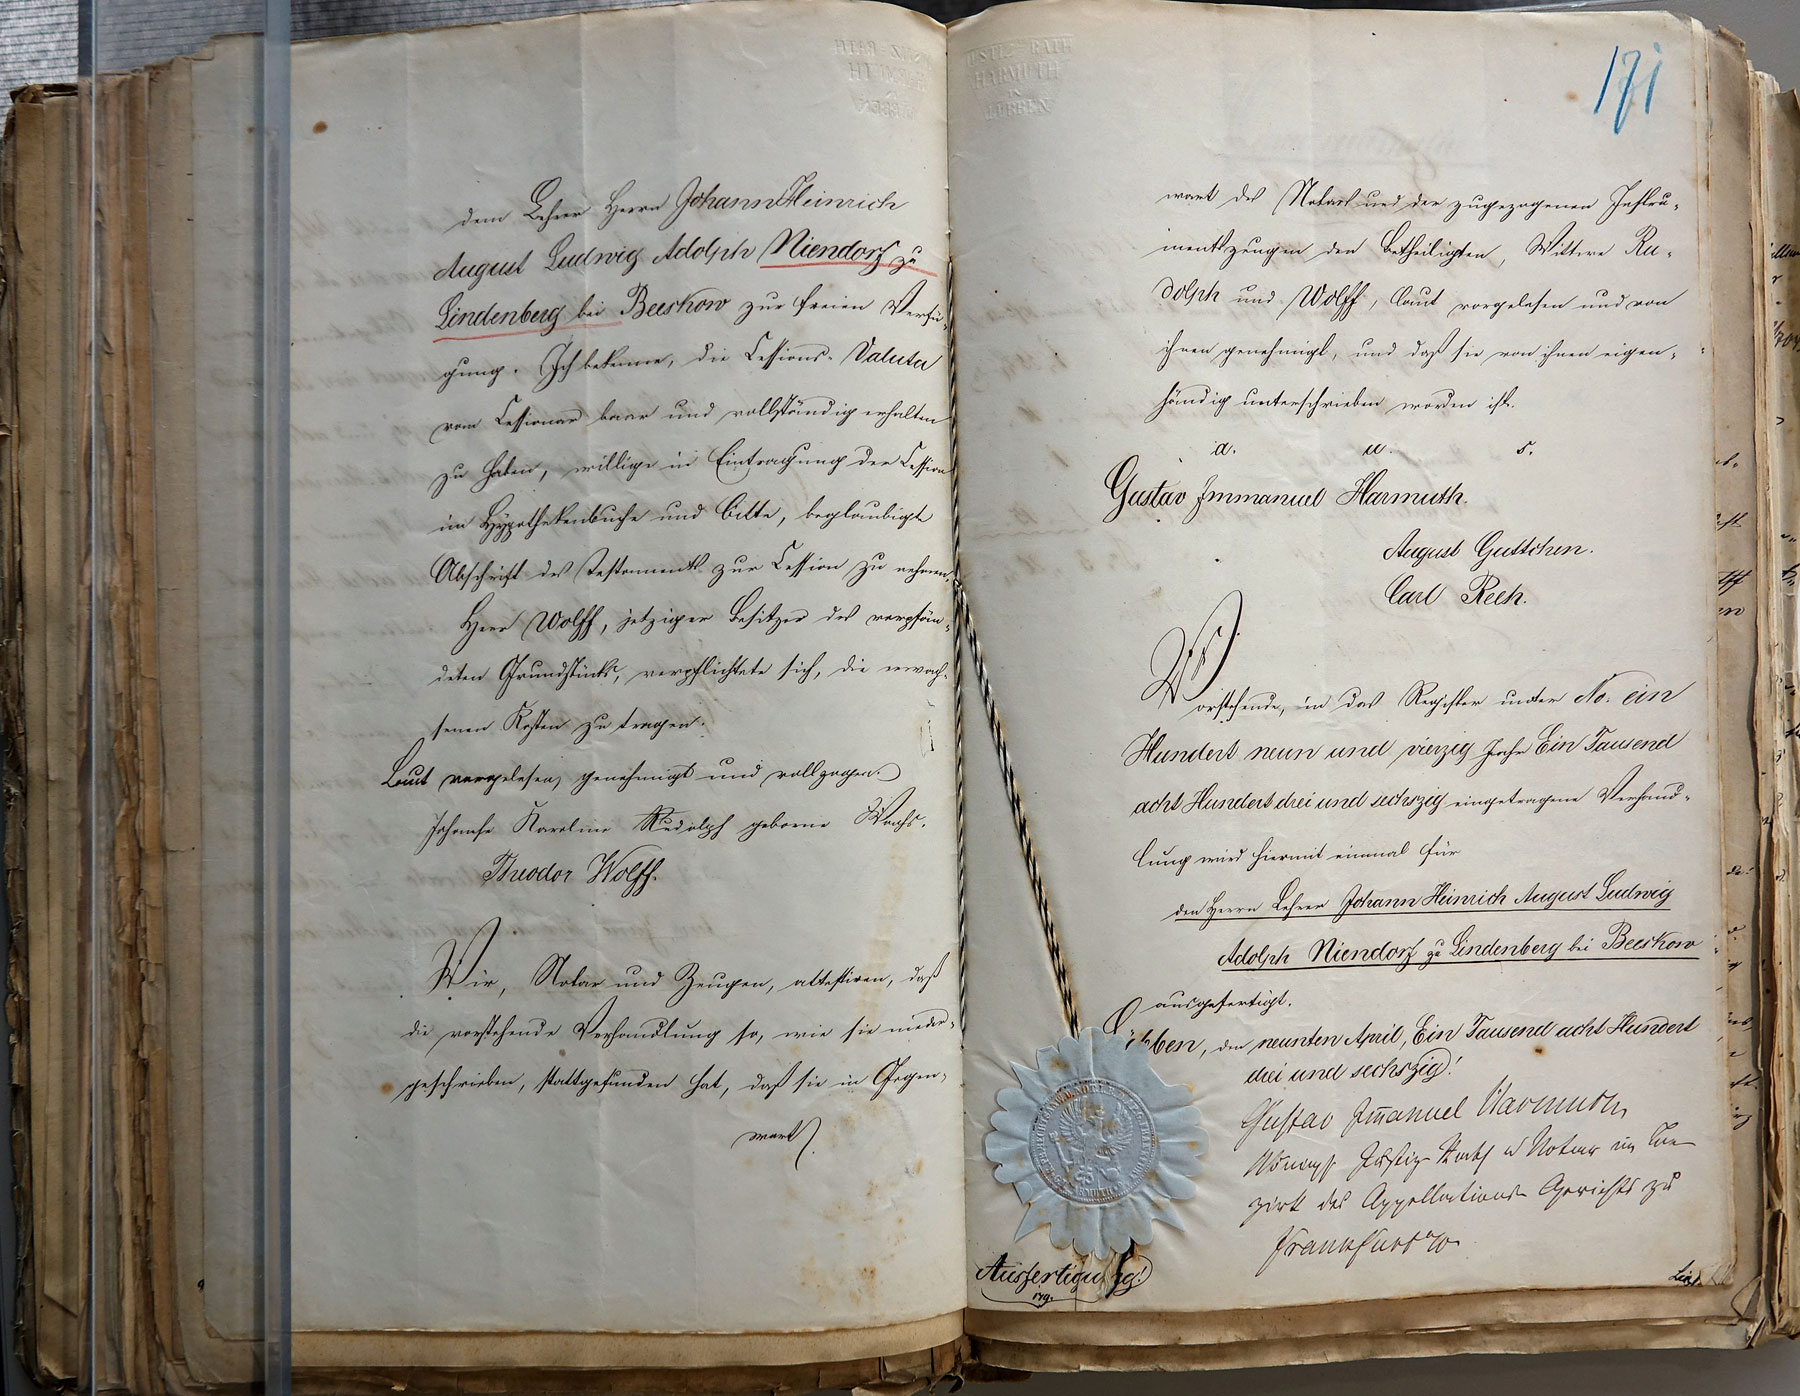 dem Lehrer Herrn Johann Heinrich
August Ludwig Adolph Niendorf zu
Lindenberg bei Beeskow zur freien Verfü-
gung. Ich bekenne, die Cessions-Valuta
vom Cessionar baar und vollständig erhalten
zu haben, willige in Eintragung der Cession
im Hypothekenbuche und bitte, beglaubigte
Abschrift des Testaments zur Cession zu nehmen.
Herr Wolff, jetziger Besitzer des verpfän-
deten Grundstücks, verpflichtete sich, die erwach-
senen Kosten zu tragen.
Laut vorgelesen, genehmigt und vollzogen.
Johanne Karoline Rudolph geborne
Theodor Wolff.
Wir, Notar und Zeugen, attestiren, daß
die vorstehende Verhandlung so, wie sie nieder-
geschrieben, stattgefunden hat, daß sie in Gegen-
wart
JUSTIZ-RATH
HARMUTH
IN
LÜBBEN
171
wart des Notars und der zugezogenen Instru-
mentszeugen den Betheiligten, Wittwe Ru-
dolph und Wolff, laut vorgelesen und von
ihnen genehmigt, und daß sie von ihnen eigen-
händig unterschrieben worden ist.
a. u. s.
Gustav Immanuel Harmuth.
August Guttchen.
Carl Rech.
Vorstehende, in das Register unter No. ein
Hundert neun und vierzig Jahr Ein Tausend
acht Hundert drei und sechszig eingetragene Verhand-
lung wird hiermit einmal für
den Herrn Lehrer Johann Heinrich August Ludwig
Adolph Niendorf zu Lindenberg bei Beeskow
ausgefertigt.
Lübben, den neunten April, Ein Tausend acht Hundert
drei und sechszig!
Gustav Immanuel Harmuth,
Königl. Justiz Rath u Notar im Be-
zirk des Appellations Gerichts zu
Frankfurt a/O
Ausfertigung!